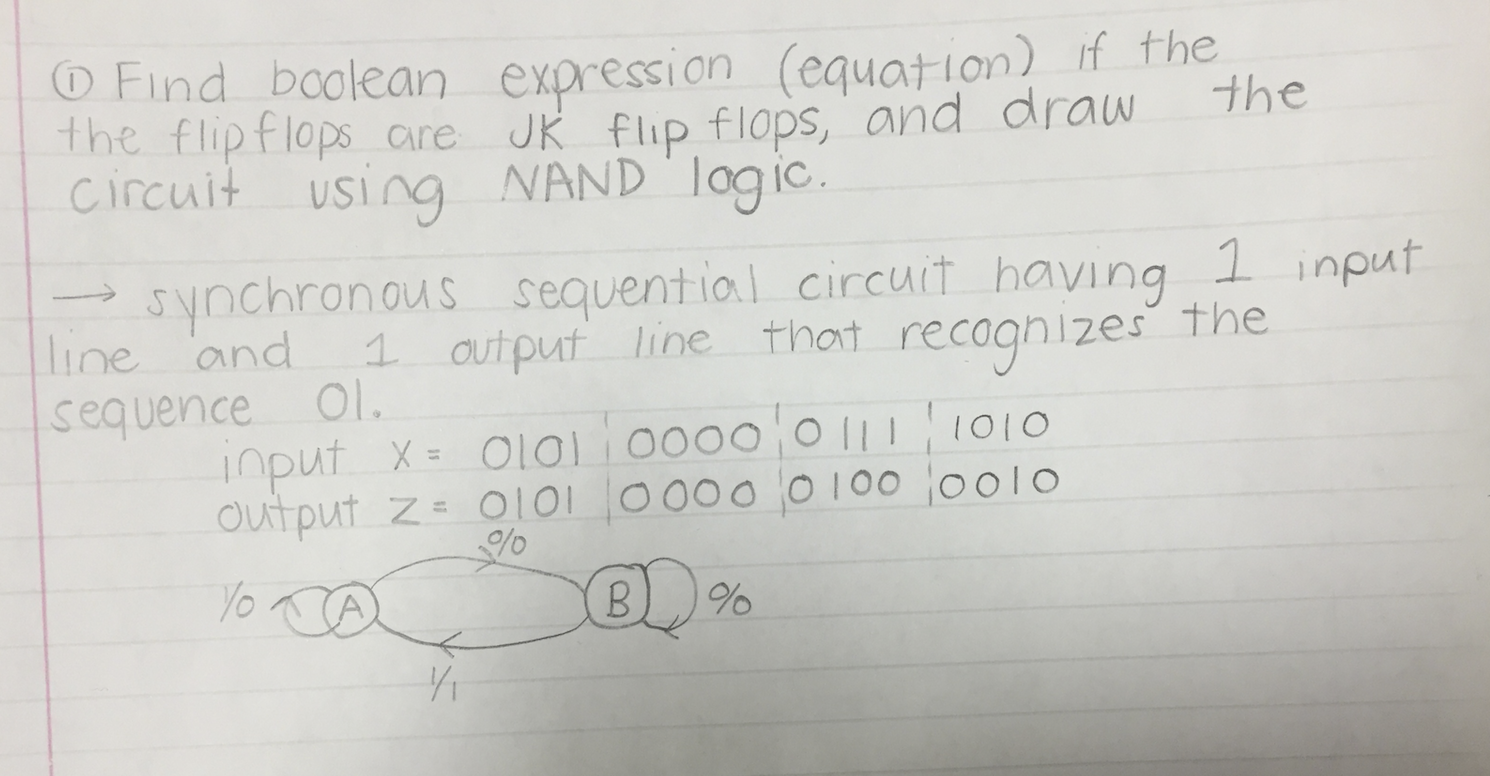 ① Find boolean expression (equation) if the
the flip flops are JK flip flops, and draw the
circuit using NAND logic.
→ synchronous sequential circuit having 1 input
line and 1 output line that recognizes the
sequence 01.
input x = 0101 | 0000 | 0111 | 1010
output z = 0101 | 0000 | 0100 | 0010
0/0
1/0 A B 0/0
1/1